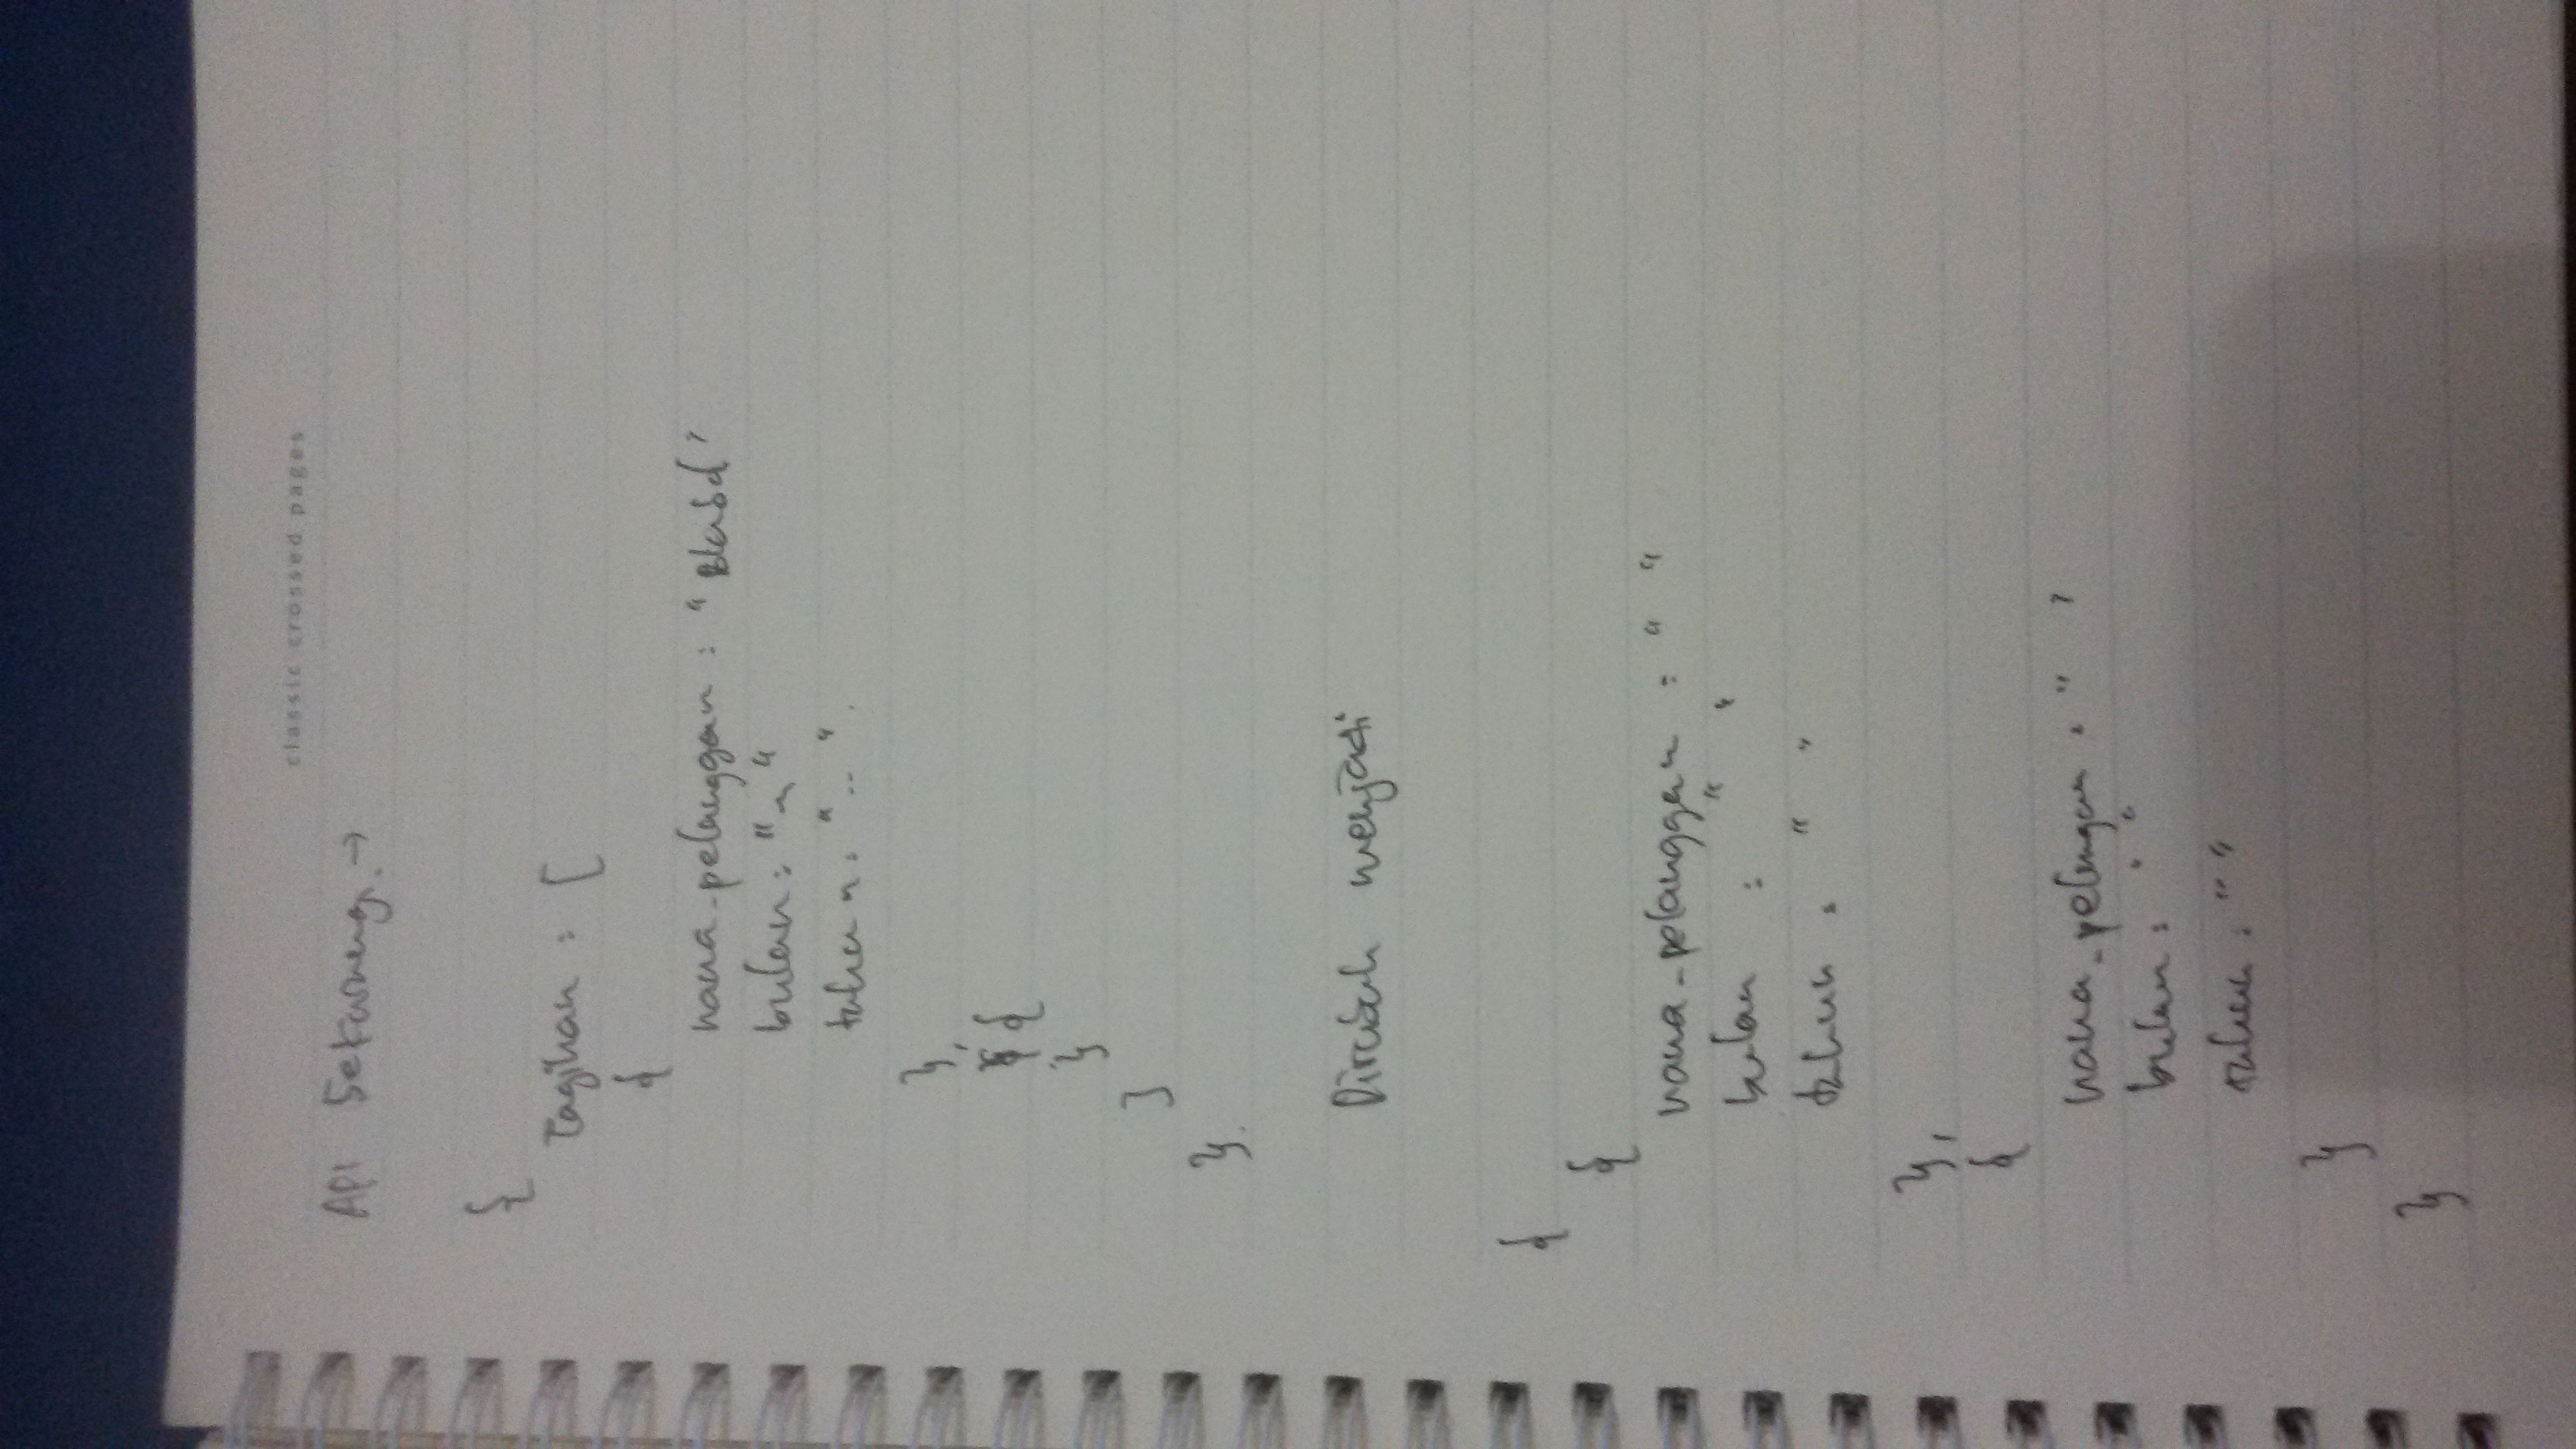 classic crossed pages
API Sekarang. →
{
Tagihan : [
{
nama_pelanggan : "
bulan : " ~ "
tahun : " ... "
},
{
}
]
}.
Dirubah menjadi
{
{
nama_pelanggan : " "
bulan : " "
tahun : " "
},
{
nama_pelanggan : " "
bulan : " "
tahun : " "
}
}